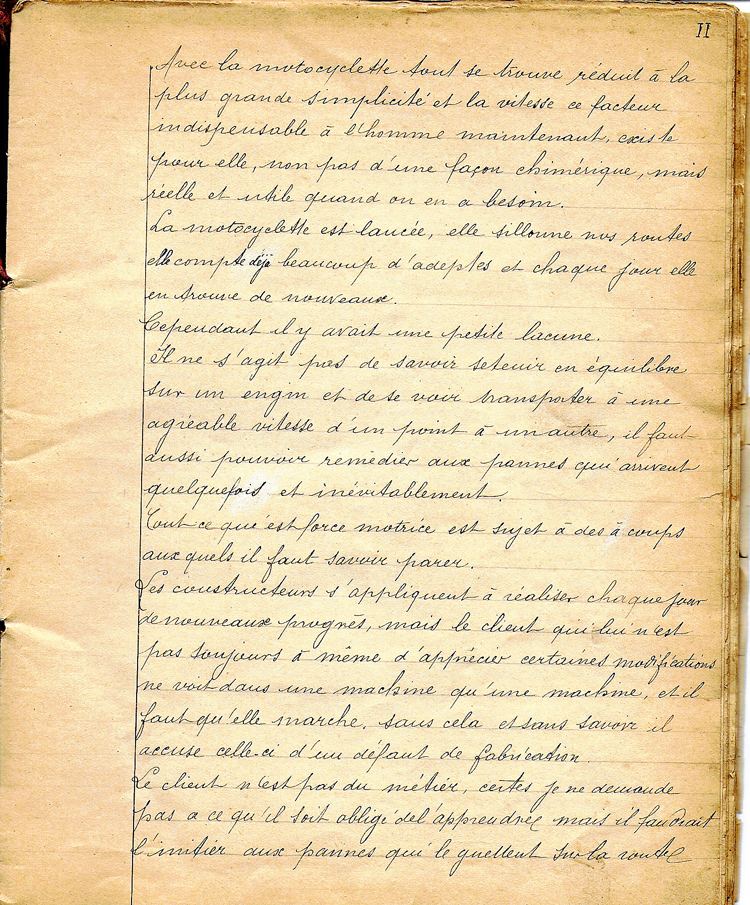 II
Avec la motocyclette tout se trouve réduit à la
plus grande simplicité et la vitesse ce facteur
indispensable à l'homme maintenant, existe
pour elle, non pas d'une façon chimérique, mais
réelle et utile quand on en a besoin.
La motocyclette est lancée, elle sillonne nos routes
elle compte déjà beaucoup d'adeptes et chaque jour elle
en trouve de nouveaux.
Cependant il y avait une petite lacune.
Il ne s'agit pas de savoir se tenir en équilibre
sur un engin et de se voir transporter à une
agréable vitesse d'un point à un autre, il faut
aussi pouvoir remédier aux pannes qui arrivent
quelquefois et inévitablement.
Tout ce qu'est force motrice est sujet à des à coups
aux quels il faut savoir parer.
Les constructeurs s'appliquent à réaliser chaque jour
de nouveaux progrès, mais le client qui lui n'est
pas toujours à même d'apprécier certaines modifications
ne voit dans une machine qu'une machine, et il
faut qu'elle marche, sans cela et sans savoir il
accuse celle-ci d'un défaut de fabrication.
Le client n'est pas du métier, certes je ne demande
pas a ce qu'il soit obligé de l'apprendre mais il faudrait
l'initier aux pannes qui le guettent sur la route